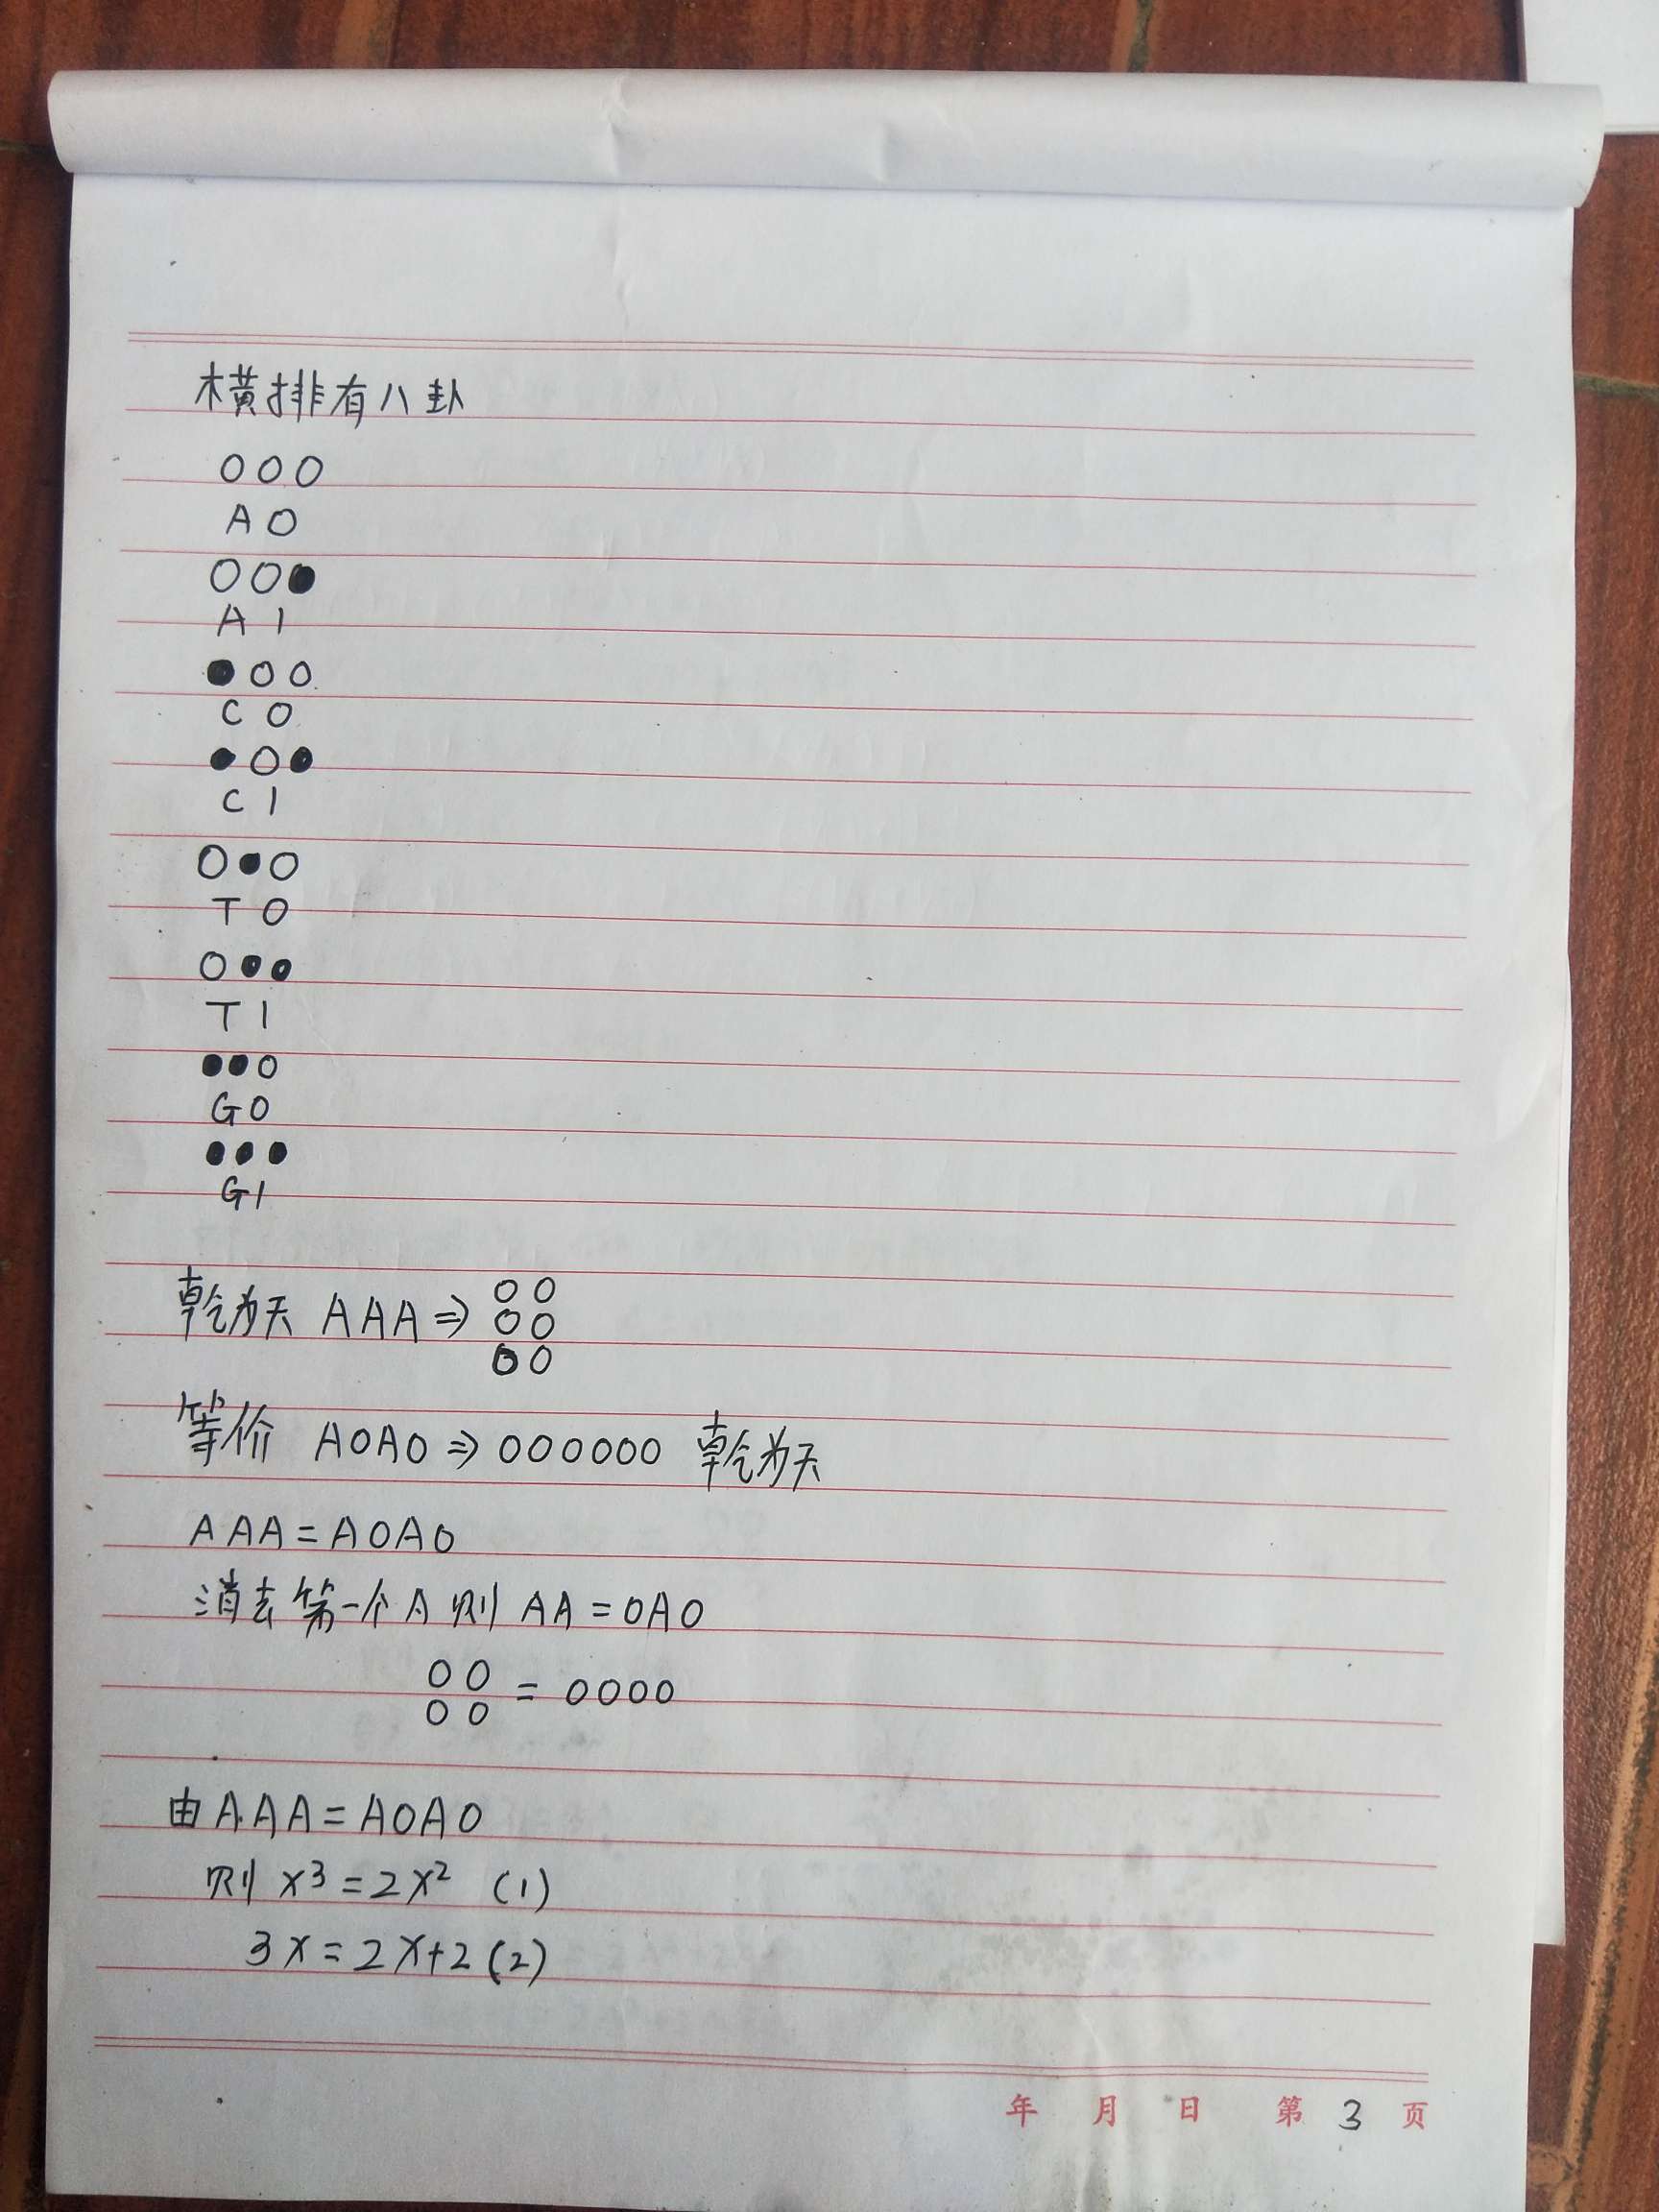 横排有八卦
○○○
A0
○○●
A1
●○○
C0
●○●
C1
○●○
T0
○●●
T1
●●○
G0
●●●
G1
○○
乾为天 AAA⇒ ○○
○○
等价 A0A0⇒○○○○○○ 乾为天
AAA=A0A0
消去第一个A则 AA=0A0
○○
○○ = ○○○○
由AAA=A0A0
则 x³=2x² (1)
3x=2x+2(2)
年 月 日 第 3 页